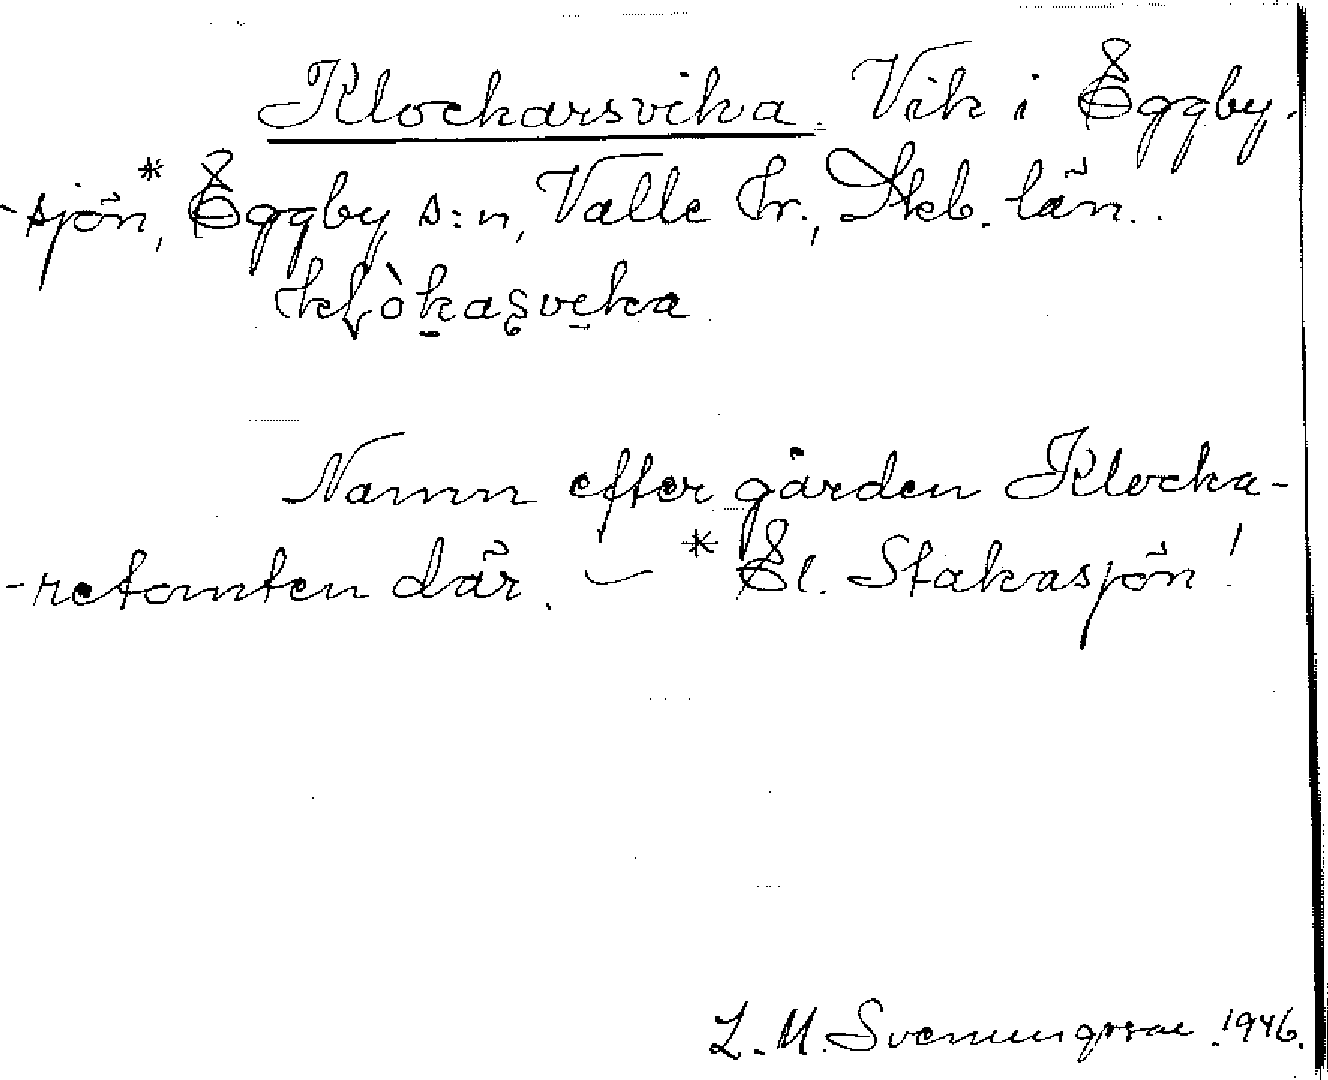 Klockarsvika. Vik i Eggby-
-sjön,* Eggby s:n, Valle hr., Skb. län.
Namn efter gården Klocka-
-retomten där. — * El. Stakasjön!
L. M. Svenungsson 1946.